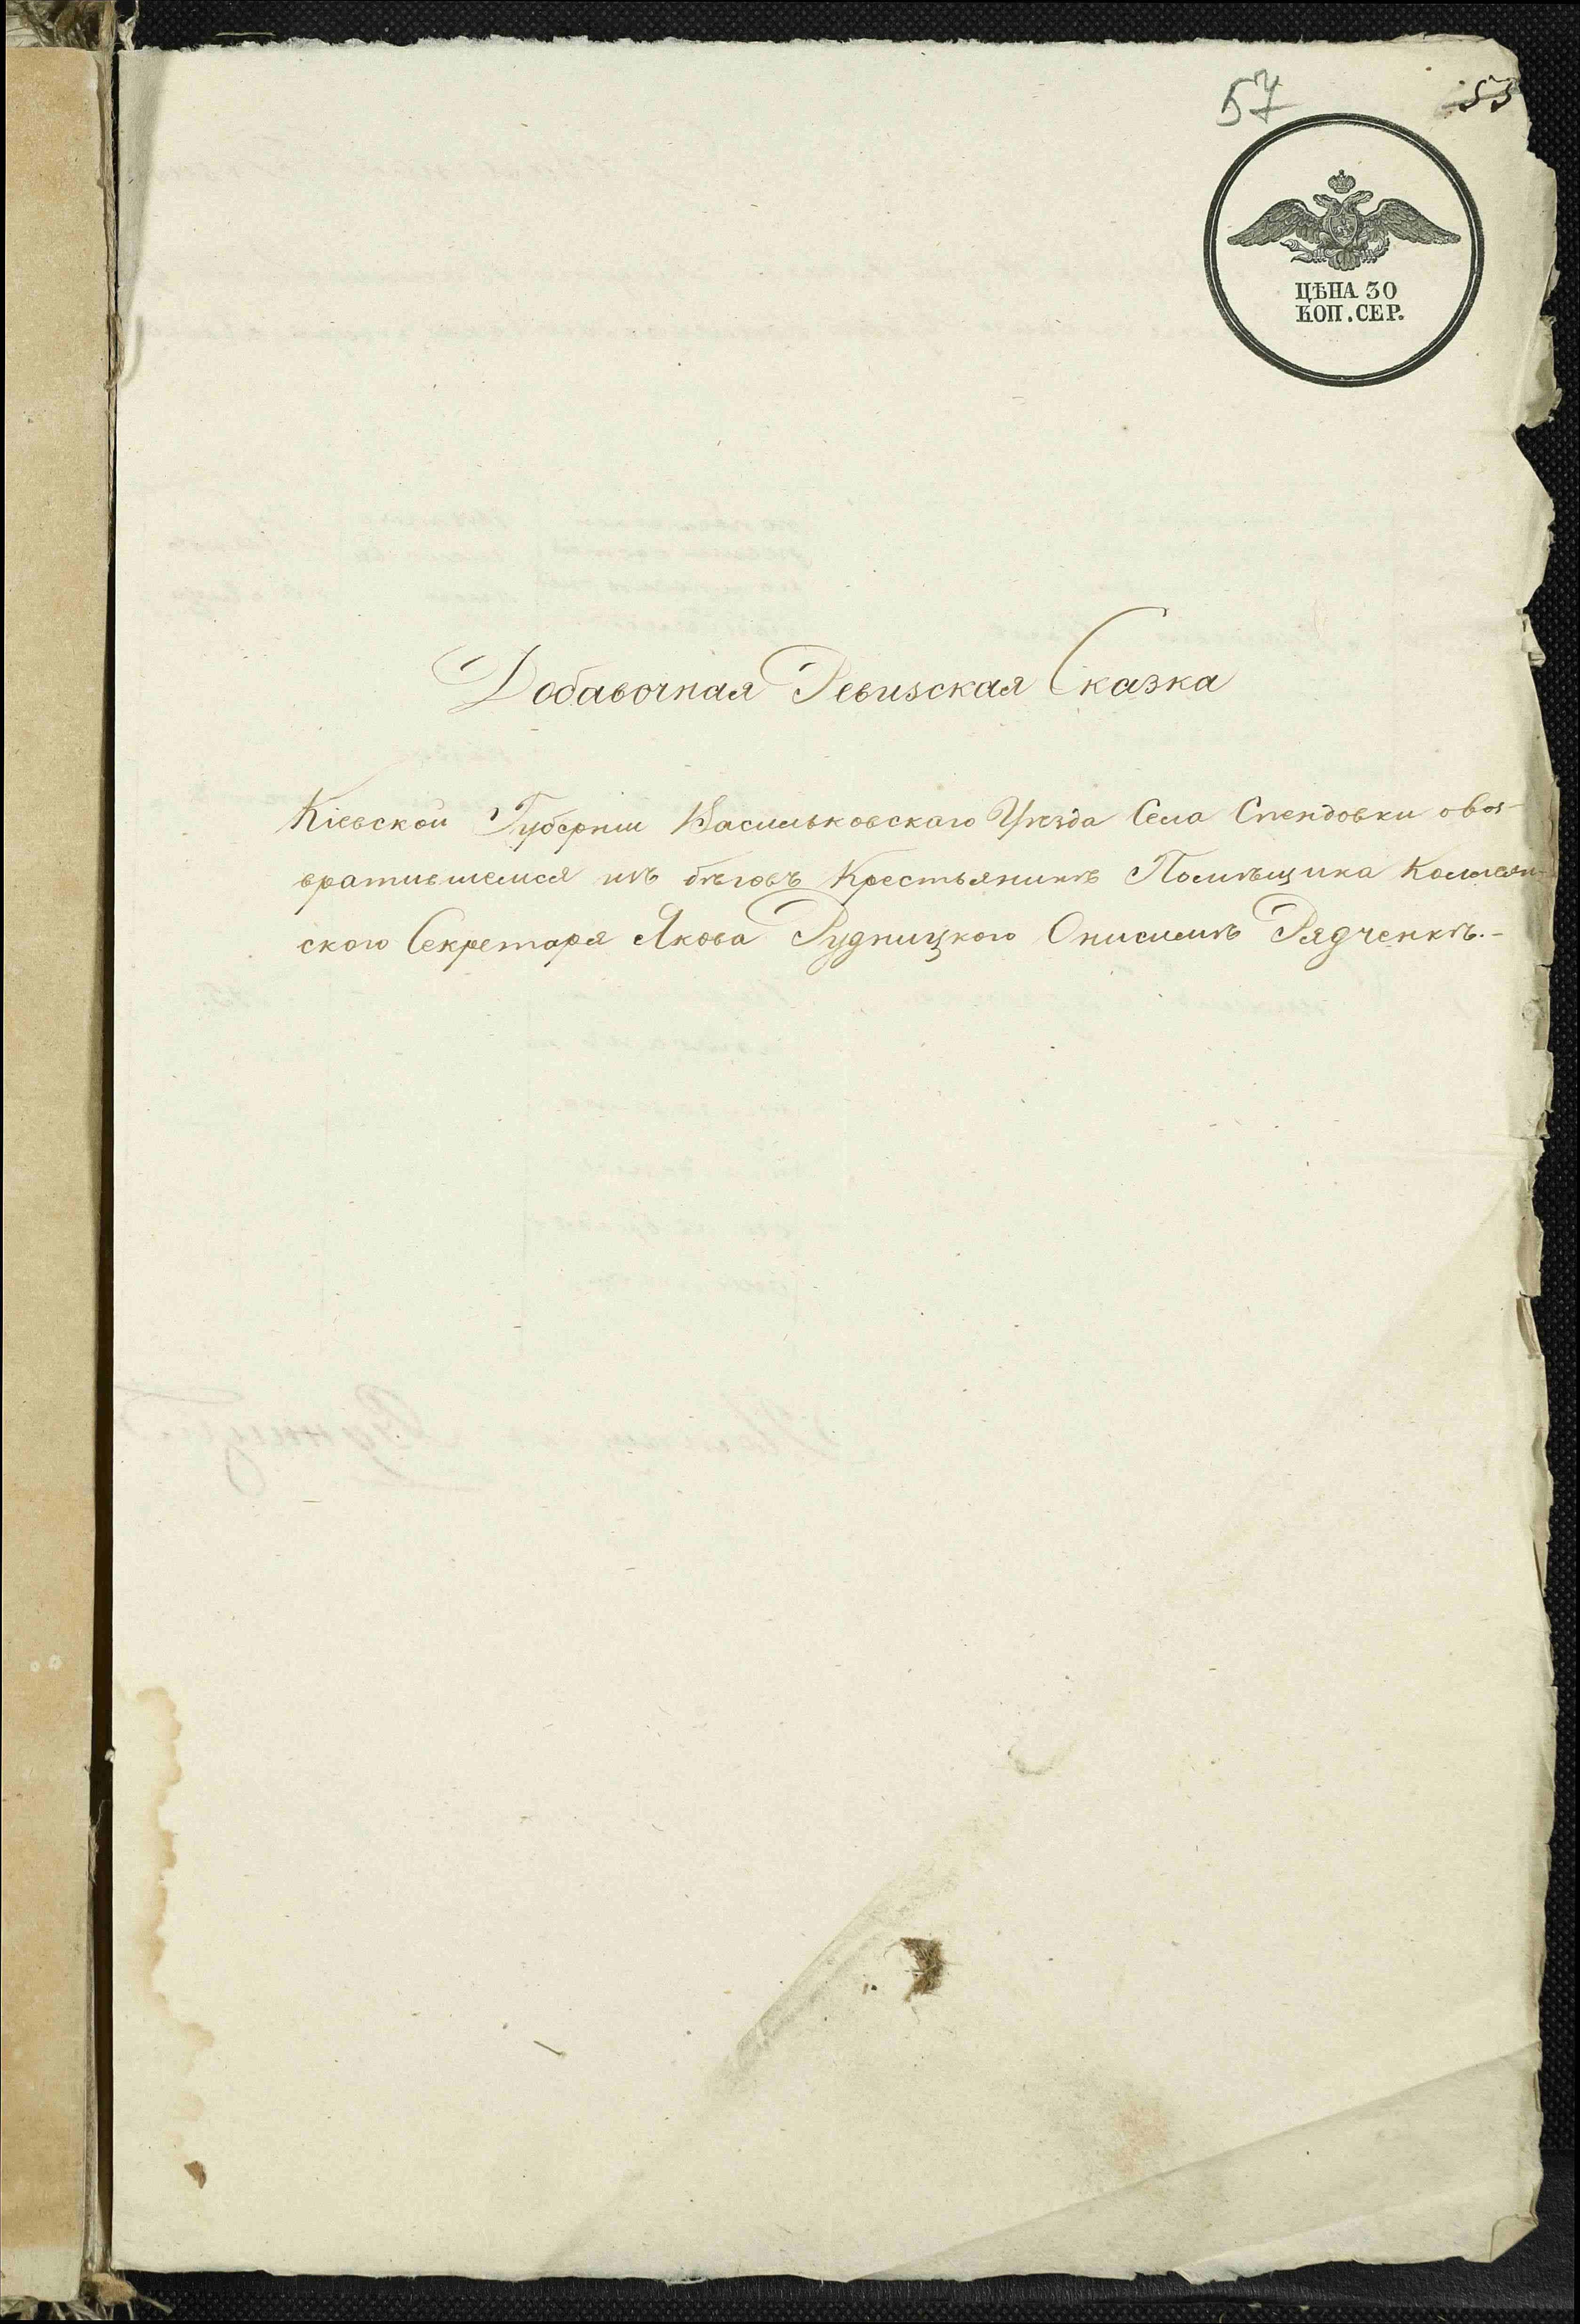 57
55
ЦѢНА 30
КОП. СЕР.
Добавочная Ревизская Сказка
Кіевской Губерніи Васильковскаго Уѣзда Села Спендовки овоз-
вратившемся изъ бѣговъ Крестьянинѣ Помѣщика Коллеж-
ского Секретаря Якова Рудницкого Онисимѣ Рядченкѣ.-